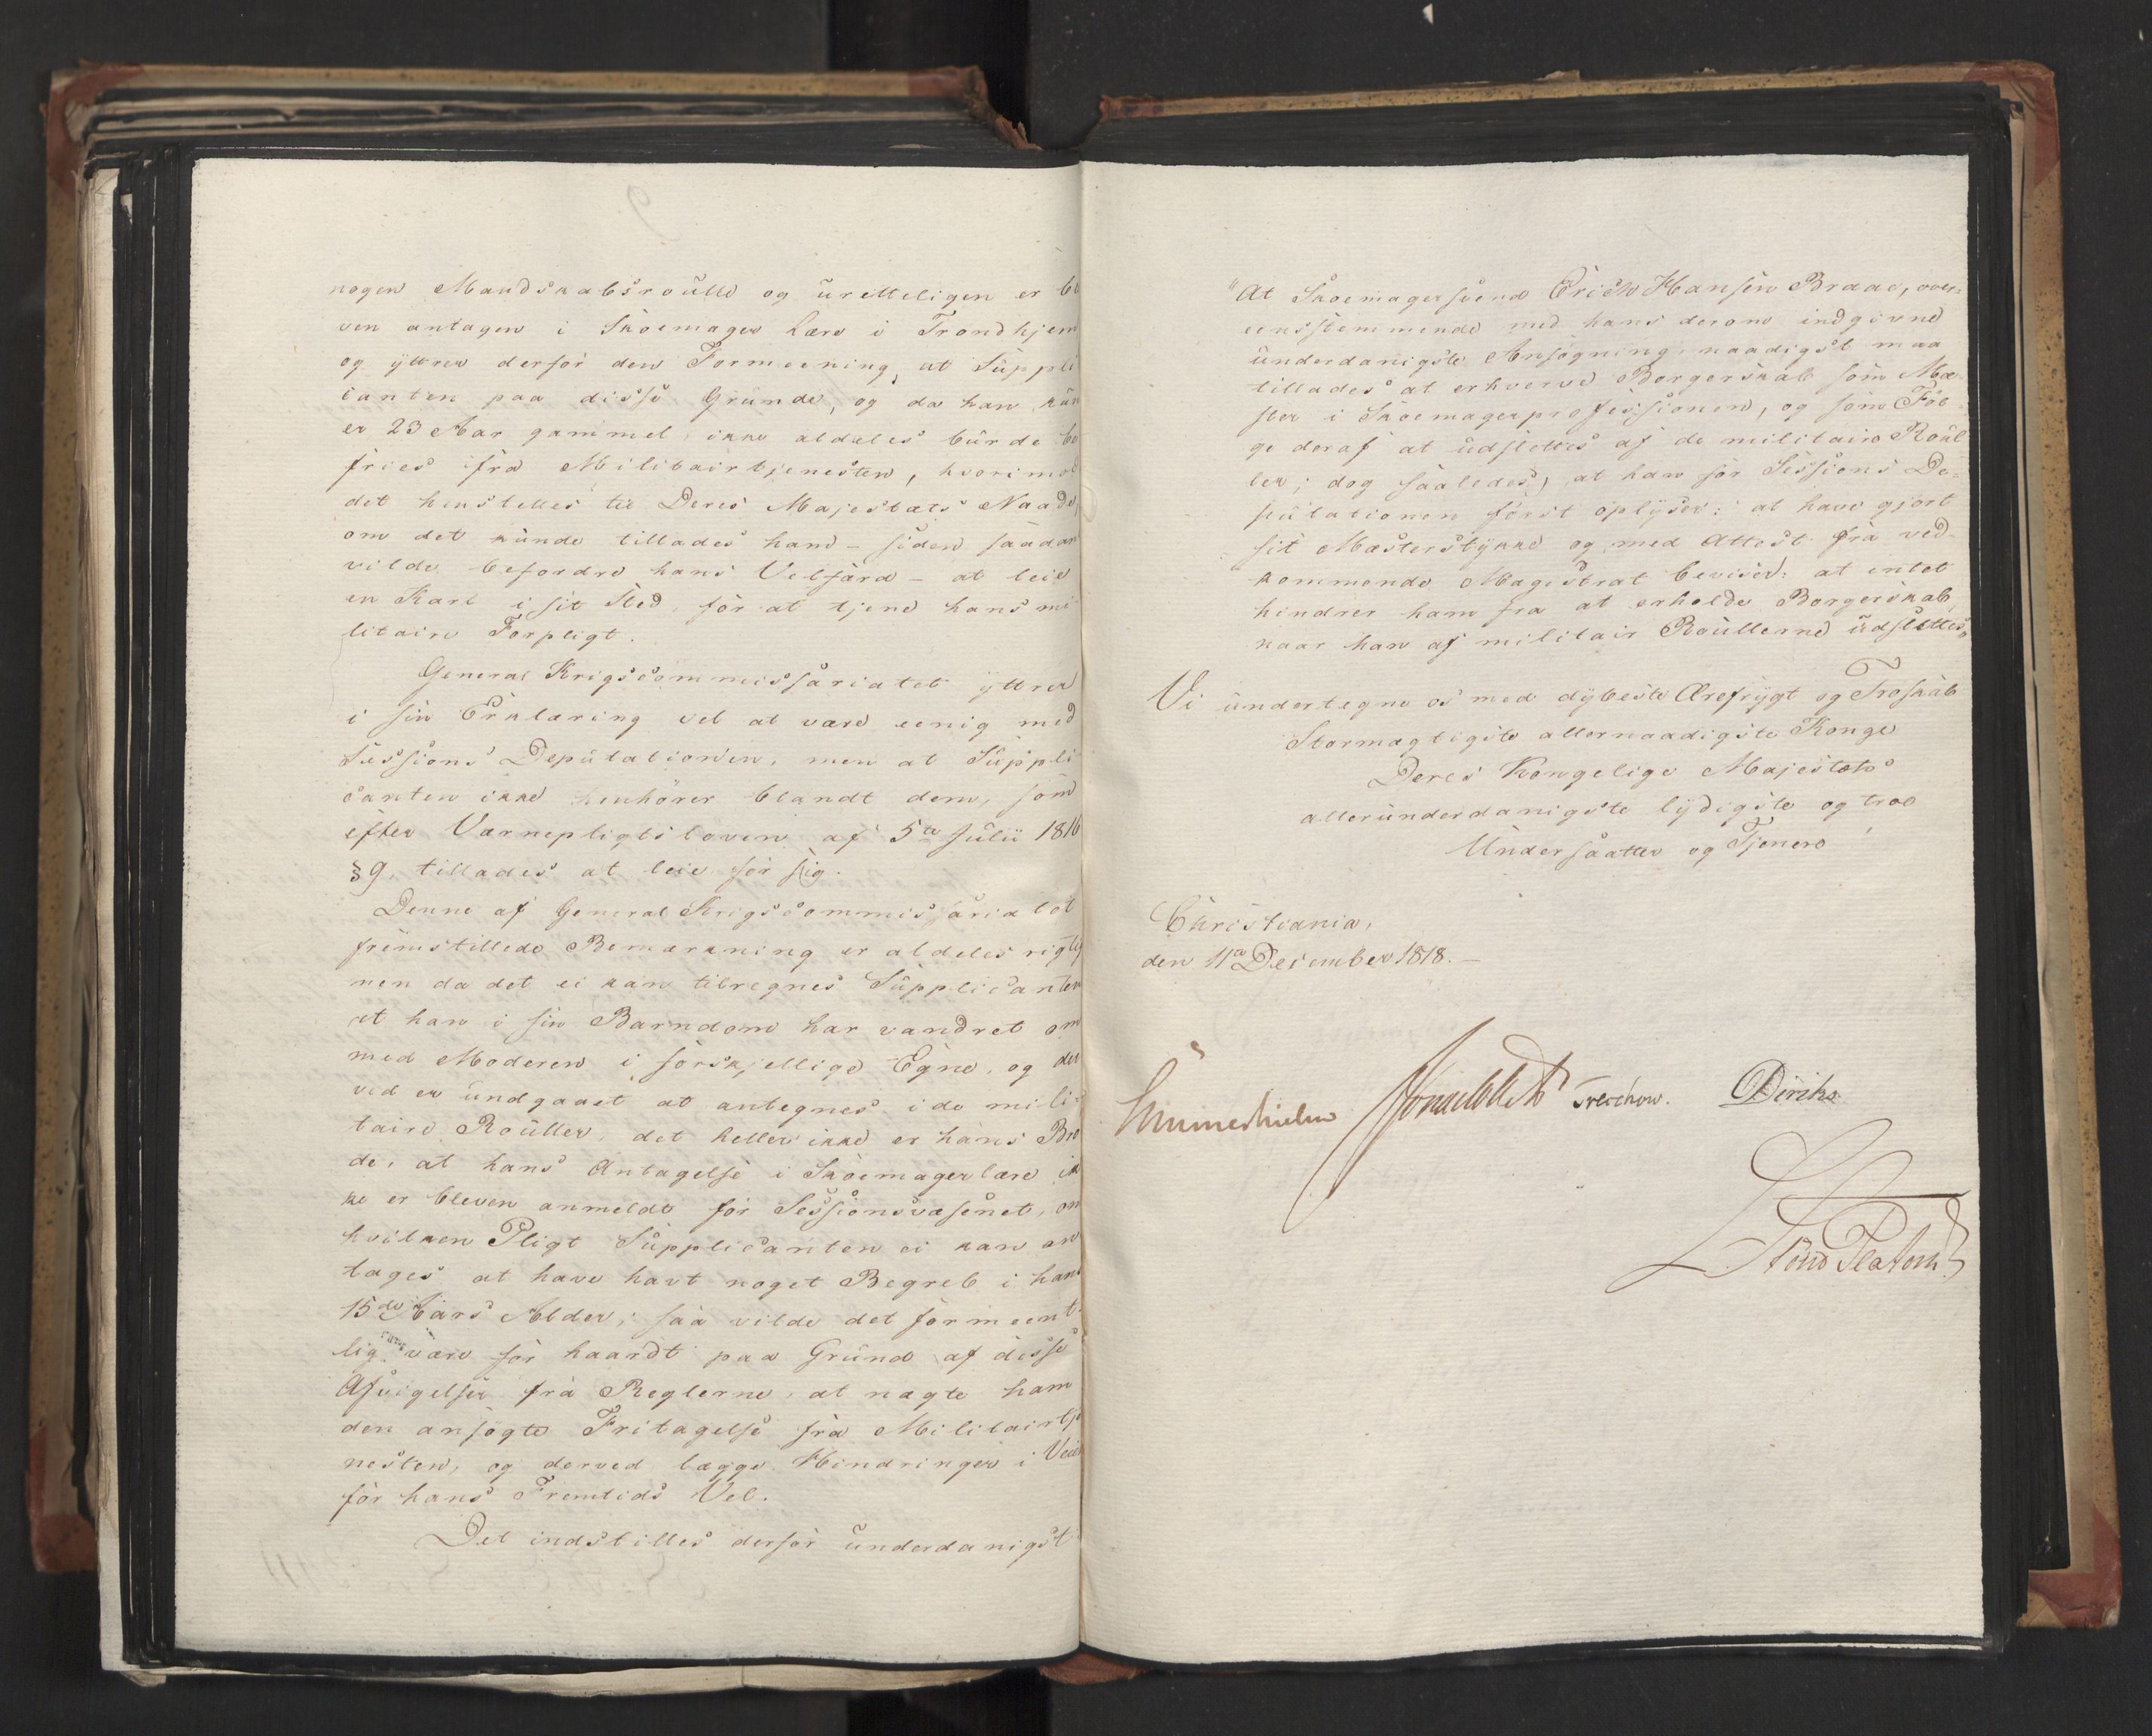 nogen Mandskabsroulle og uretteligen er ble
ven antagen i Skoemager Lære i Trondhjem
og yttrer derfor den Formeening, at Suppli
canten paa disse Grunde, og da han kun
er 23 Aar gammel ikke aldeles burde be
fries ifra Militairtjenesten, hvorimod
det henstilles til Deres Majestæts Naade,
om det kunde tillades ham - siden saadan
vilde befordre hans Velfærd - at leie
en Karl i sit Sted, for at tjene hans mi
litaire Forpligt.
General Krigscommissariatet yttrer
i sin Erklæring vel at være eenig med
Sessions Deputationen, men at Suppli
canten ikke henhører blandt dem, som
efter Værnepligtsloven af 5te Julii 1816
§ 9, tillades at leie for sig.
Denne af General Krigscommissariatet
fremstillede Bemærkning er aldeles rigtig
men da det ei kan tilregnes Supplicanten
at han i sin Barndom har vandret om
med Moderen i forskjellige Egne, og der
ved er undgaaet at antegnes i de mili-
taire Rouller, det heller ikke er hans Brø
de, at hans Antagelse i Skoemagerlære ik
ke er bleven anmeldt for Sessionsvæsenet, om
hvilken Pligt Supplicanten ei kan an
tages at have havt noget Begreb i hans
15de Aars Alder; saa vilde det formeent
lig være for haardt paa Grund af disse
Afvigelser fra Reglerne, at nægte ham
den ansøgte Fritagelse fra Militairtje
nesten, og derved lægge Hindringer i Veien
for hans Fremtids Vel.
Det indstilles derfor underdanigst
"At Skoemagersvend Erich Hansen Braae, over-
eensstemmende med hans derom indgivne
underdanigste Ansøgning, naadigst maa
tillades at erhverve Borgerskab som Me
ster i Skoemagerprofessionen, og som Føl
ge deraf at udslettes af de militaire Roul
ler; dog saaledes, at han for Sessions De-
putationen først oplyser: at have gjort
sit Mesterstykke og med Attest fra ved-
kommende Magistrat beviser: at intet
hindrer ham fra at erholde Borgerskab,
naar han af militair Roullerne udslettes."
Vi undertegne os med dybeste Ærefrygt og Troskab
Stormægtigste allernaadigste Konge
Deres Kongelige Majestæts
allerunderdanigste lydigste og troe
Undersaatter og Tjenere
Christiania,
den 11te December 1818. -
Hummerhielm Treschow. Diriks